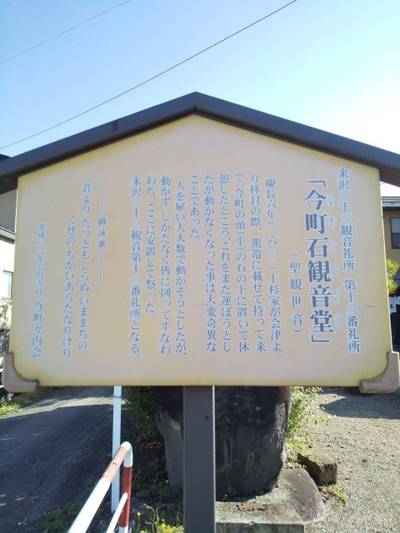 米沢三十三観音札所 第十三番札所
「今町石観音堂」
(聖観世音)
慶長六年(一六〇一)上杉家が会津よ
り移封の際、駕篭に載せて持って来
て、今町の頭十二の石の上に置いて休
憩したところ、これをまた運ぼうとし
たが動かなくなった事は大変奇異な
ことであった。
人を雇い大人数で動かそうとしたが、
動かず、しかたなく皆に図ってすなわ
わち、ここに安置して祭った。
米沢三十三観音第十三番札所となる。
御詠歌
君まりたつともとらぬいままちの
くぜのちかいあらたなりけり
今町々内会